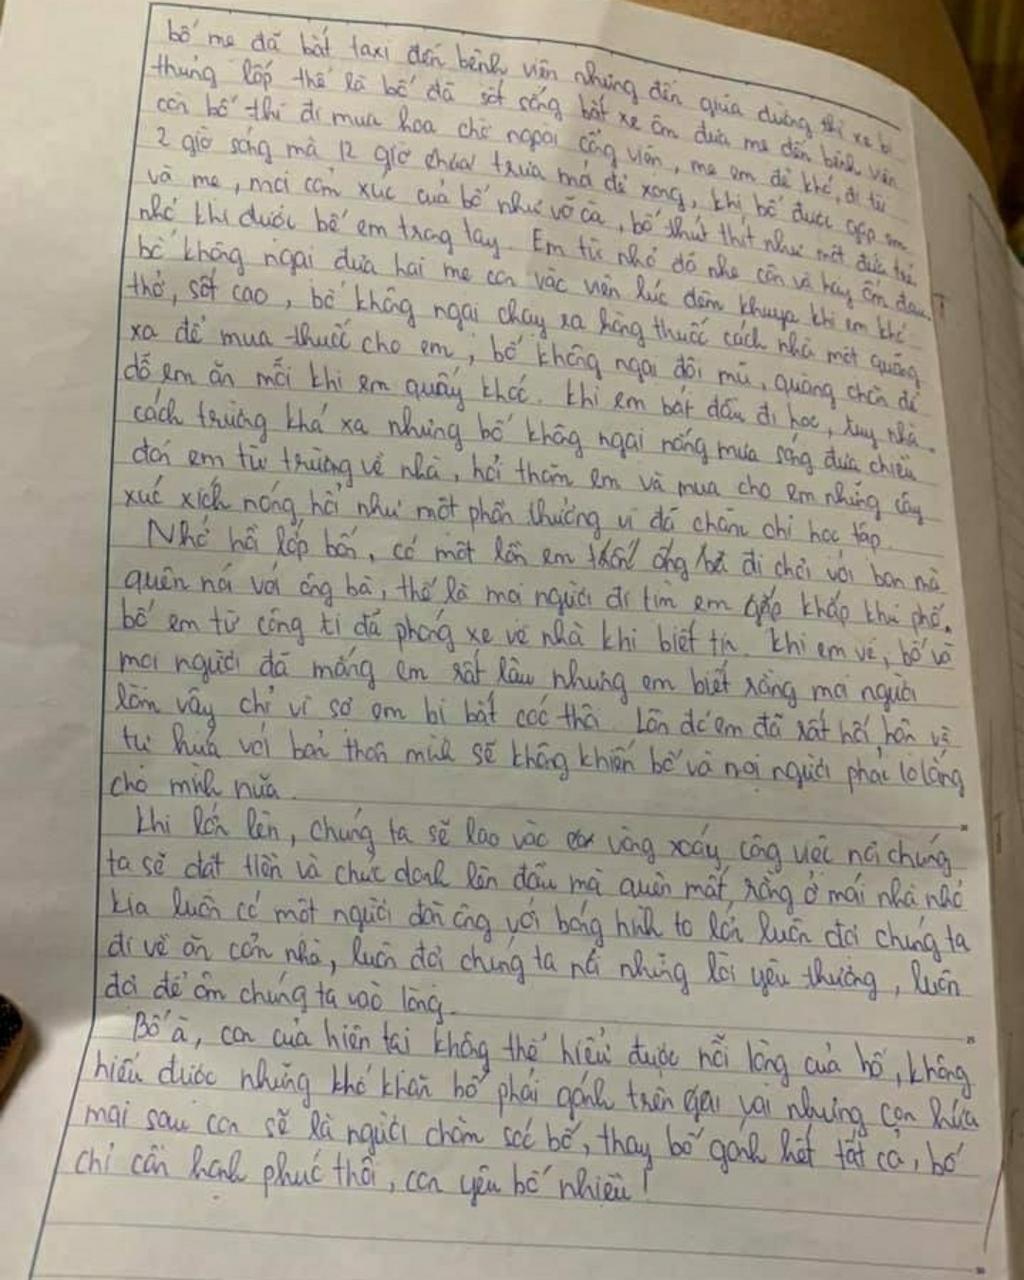 bố mẹ đã bắt taxi đến bệnh viện nhưng đến giữa đường thì xe bị
thủng lốp thế là bố đã sốt sắng bắt xe ôm đưa mẹ đến bệnh viện
còn bố thì đi mua hoa chờ ngoài cổng viện, mẹ em đẻ khó, đi từ
2 giờ sáng mà 12 giờ trưa mới đẻ xong, khi bố được gặp em
và mẹ, mọi cảm xúc của bố như vỡ òa, bố thút thít như một đứa trẻ
nhỏ khi được bế em trong tay. Em từ nhỏ đã nhẹ cân và hay ốm đau,
bố không ngại đưa hai mẹ con vào viện lúc đêm khuya khi em khó
thở, sốt cao, bố không ngại chạy ra hàng thuốc cách nhà một quãng
xa để mua thuốc cho em, bố không ngại đội mũ, quàng chăn để
dỗ em ăn mỗi khi em quấy khóc. Khi em bắt đầu đi học, tuy nhà
cách trường khá xa nhưng bố không ngại nắng mưa sáng đưa chiều
đón em từ trường về nhà, hỏi thăm em và mua cho em những cây
xúc xích nóng hổi như một phần thưởng vì đã chăm chỉ học tập.
Nhớ hồi lớp bốn, có một lần em ông bà đi chơi với bạn mà
quên nói với ông bà, thế là mọi người đi tìm em khắp khu phố,
bố em từ công ti đã phóng xe về nhà khi biết tin. Khi em về, bố và
mọi người đã mắng em rất lâu nhưng em biết rằng mọi người
làm vậy chỉ vì sợ em bị bắt cóc thôi. Lần đó em đã rất hối hận và
tự hứa với bản thân mình sẽ không khiến bố và mọi người phải lo lắng
cho mình nữa.
Khi lớn lên, chúng ta sẽ lao vào vòng xoáy công việc nơi chúng
ta sẽ đặt tiền và chức danh lên đầu mà quên mất, rằng ở mái nhà nhỏ
kia luôn có một người đàn ông với bóng hình to lớn luôn đợi chúng ta
đi về ăn cơm nhà, luôn đợi chúng ta nói những lời yêu thương, luôn
đợi để ôm chúng ta vào lòng.
Bố à, con của hiện tại không thể hiểu được nỗi lòng của bố, không
hiểu được những khó khăn bố phải gánh trên vai nhưng con hứa
mai sau con sẽ là người chăm sóc bố, thay bố gánh hết tất cả, bố
chỉ cần hạnh phúc thôi, con yêu bố nhiều!